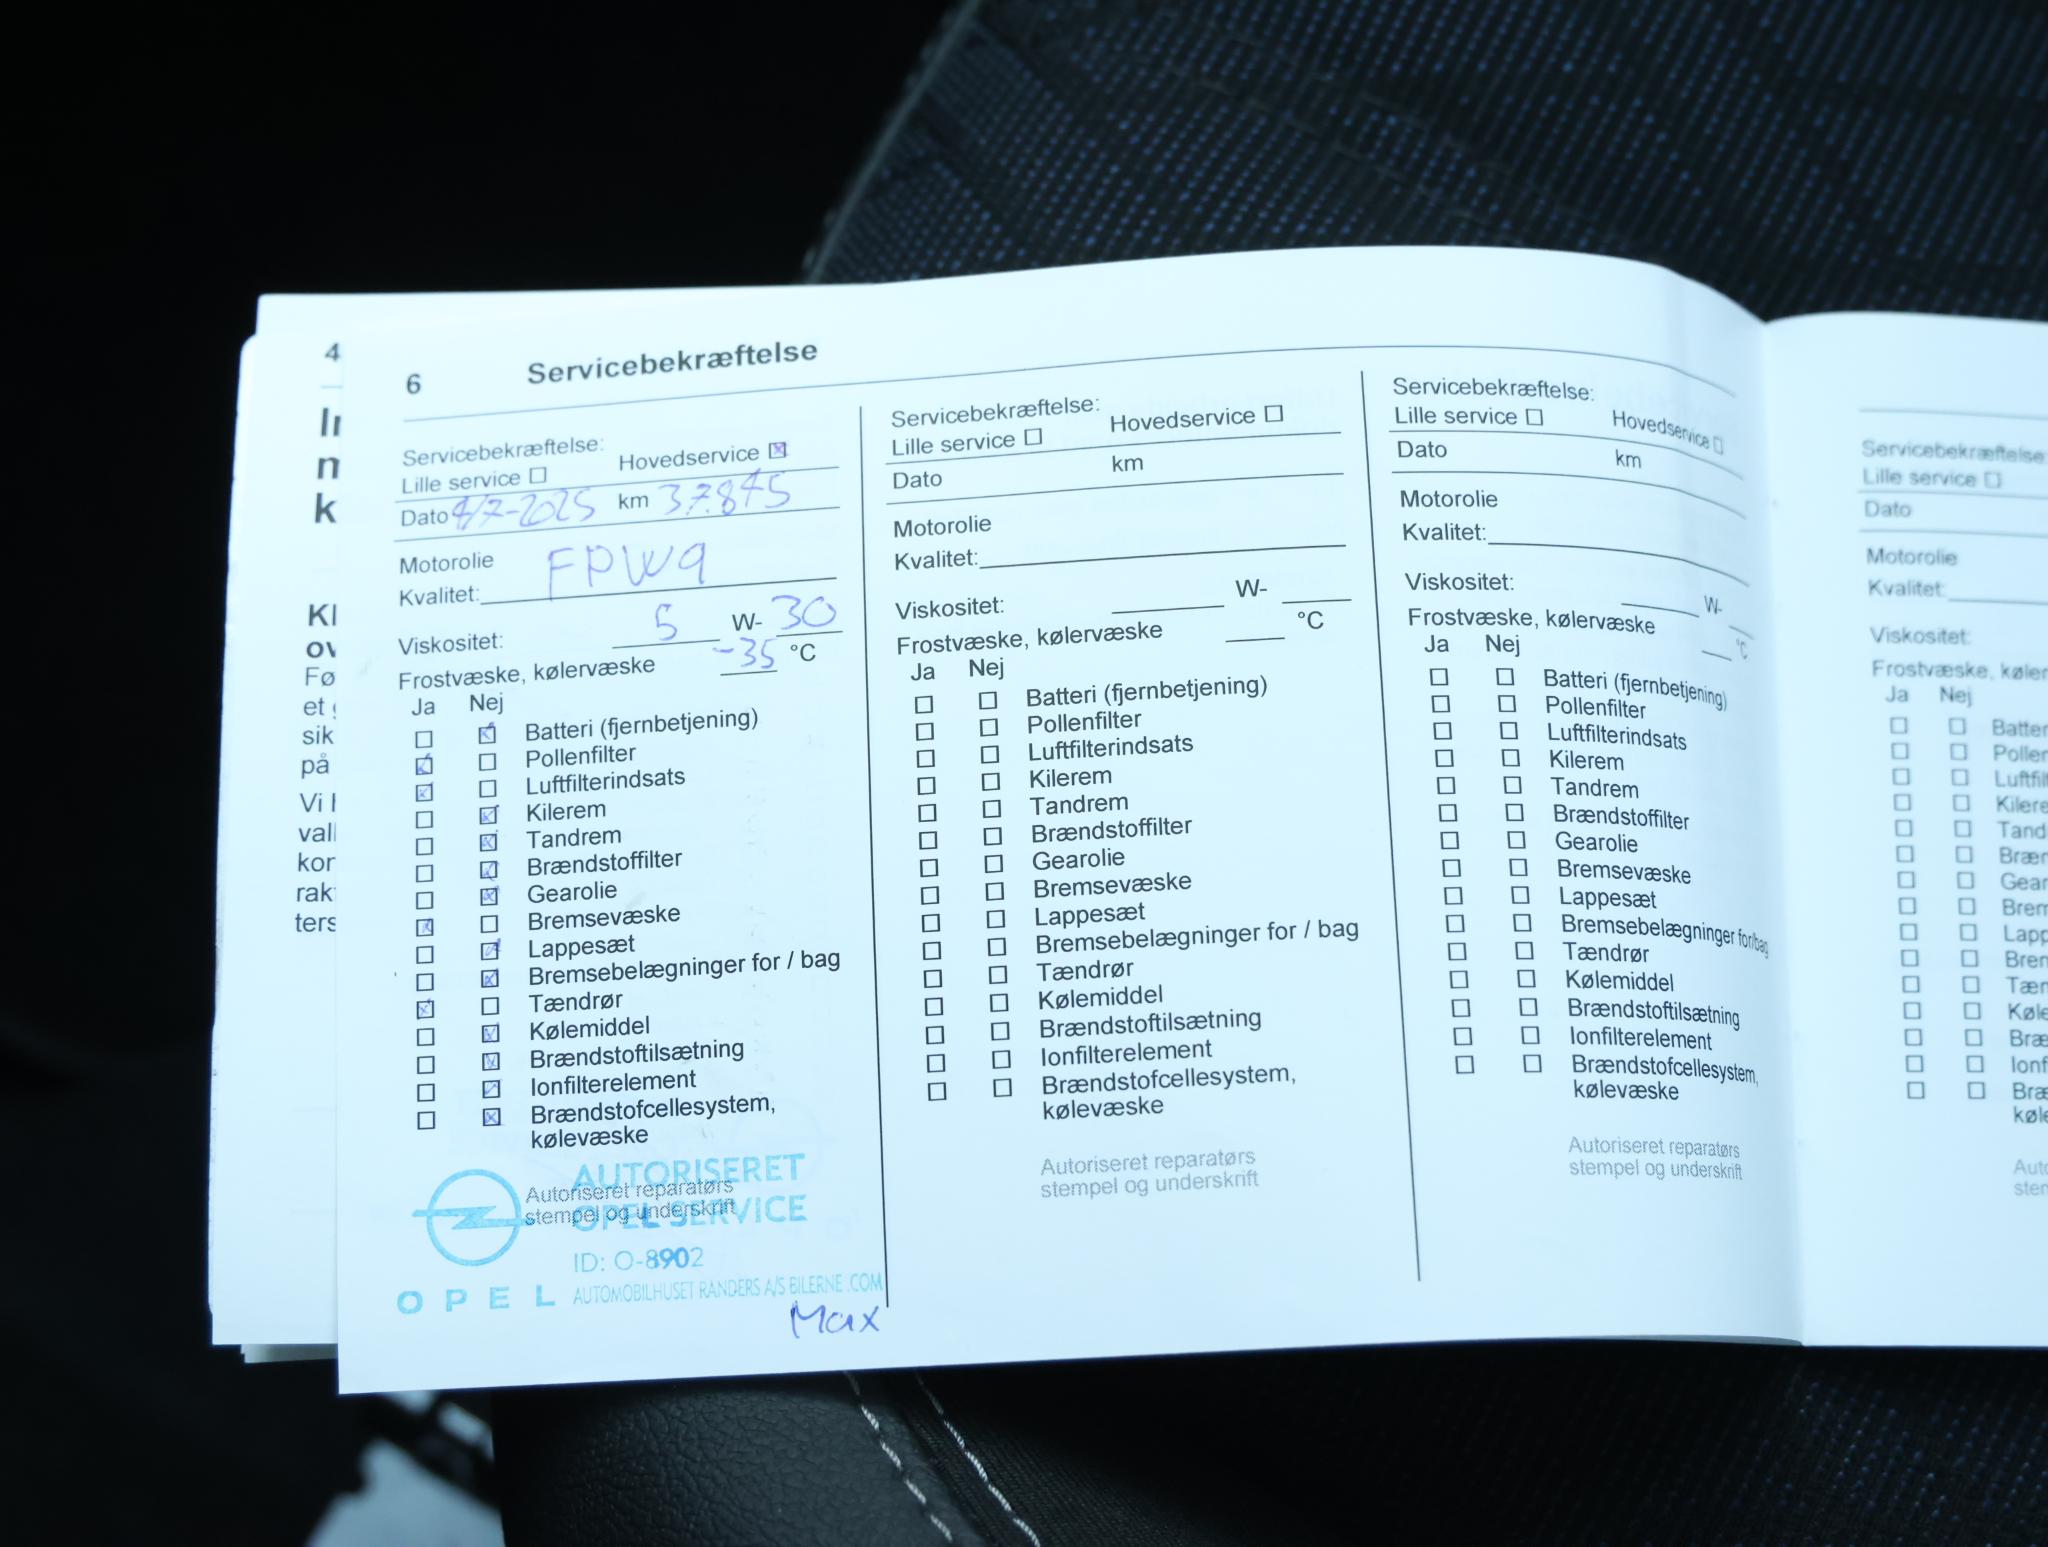 4
6 Servicebekræftelse
k
Servicebekræftelse:
Lille service ☐ Hovedservice ☒
Dato 4/7-2025 km 37.845
Motorolie
Kvalitet: FPW9
Viskositet: 5 W- 30
Frostvæske, kølervæske -35 °C
Ja Nej
☐ ☒ Batteri (fjernbetjening)
☒ ☐ Pollenfilter
☒ ☐ Luftfilterindsats
☐ ☒ Kilerem
☐ ☒ Tandrem
☐ ☒ Brændstoffilter
☐ ☒ Gearolie
☒ ☐ Bremsevæske
☐ ☒ Lappesæt
☐ ☒ Bremsebelægninger for / bag
☒ ☐ Tændrør
☐ ☒ Kølemiddel
☐ ☒ Brændstoftilsætning
☐ ☒ Ionfilterelement
☐ ☒ Brændstofcellesystem,
kølevæske
Autoriseret reparatørs
stempel og underskrift
AUTORISERET
OPEL SERVICE
ID: O-8902
OPEL AUTOMOBILHUSET RANDERS A/S BILERNE.COM
Max
Servicebekræftelse:
Lille service ☐ Hovedservice ☐
Dato km
Motorolie
Kvalitet:
Viskositet: W-
Frostvæske, kølervæske °C
Ja Nej
☐ ☐ Batteri (fjernbetjening)
☐ ☐ Pollenfilter
☐ ☐ Luftfilterindsats
☐ ☐ Kilerem
☐ ☐ Tandrem
☐ ☐ Brændstoffilter
☐ ☐ Gearolie
☐ ☐ Bremsevæske
☐ ☐ Lappesæt
☐ ☐ Bremsebelægninger for / bag
☐ ☐ Tændrør
☐ ☐ Kølemiddel
☐ ☐ Brændstoftilsætning
☐ ☐ Ionfilterelement
☐ ☐ Brændstofcellesystem,
kølevæske
Autoriseret reparatørs
stempel og underskrift
Servicebekræftelse:
Lille service ☐ Hovedservice ☐
Dato km
Motorolie
Kvalitet:
Viskositet: W-
Frostvæske, kølervæske °C
Ja Nej
☐ ☐ Batteri (fjernbetjening)
☐ ☐ Pollenfilter
☐ ☐ Luftfilterindsats
☐ ☐ Kilerem
☐ ☐ Tandrem
☐ ☐ Brændstoffilter
☐ ☐ Gearolie
☐ ☐ Bremsevæske
☐ ☐ Lappesæt
☐ ☐ Bremsebelægninger for/bag
☐ ☐ Tændrør
☐ ☐ Kølemiddel
☐ ☐ Brændstoftilsætning
☐ ☐ Ionfilterelement
☐ ☐ Brændstofcellesystem,
kølevæske
Autoriseret reparatørs
stempel og underskrift
Servicebekræftelse
Lille service ☐
Dato
Motorolie
Kvalitet:
Viskositet:
Frostvæske,
Ja Nej